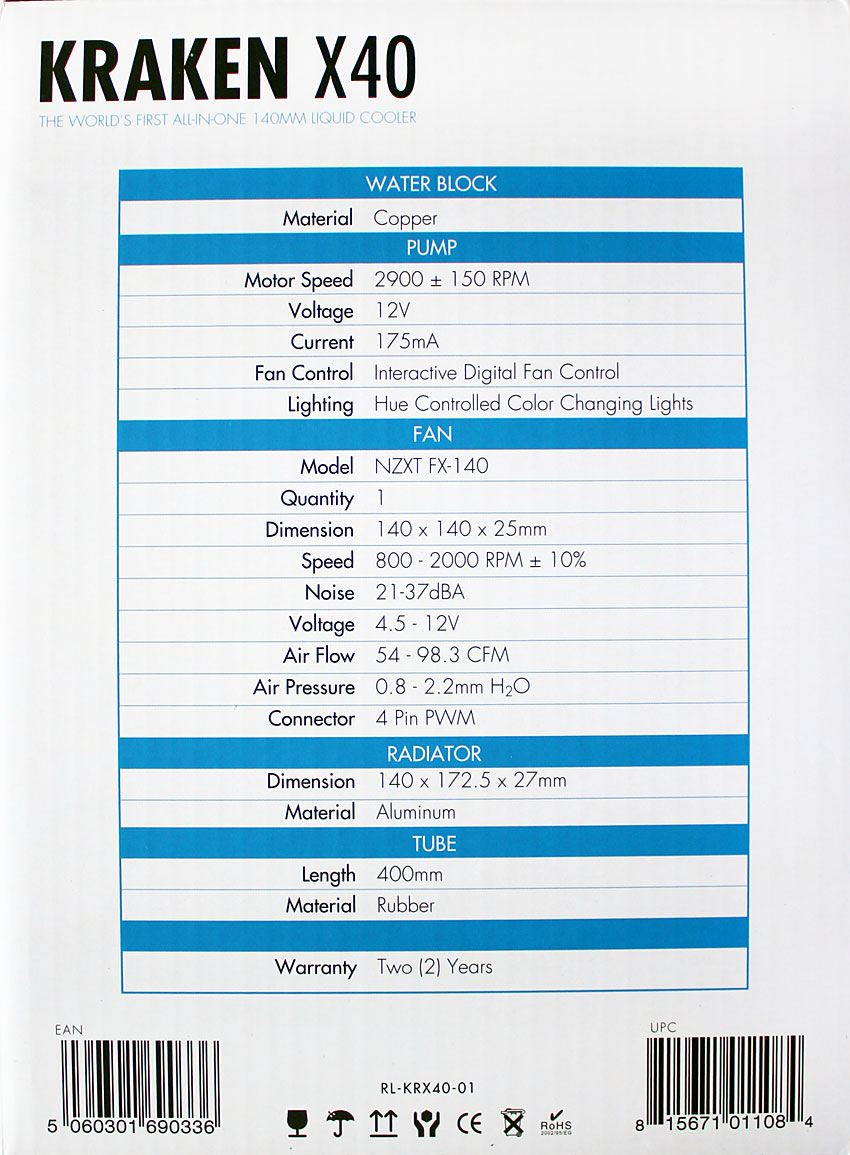 KRAKEN X40
THE WORLD'S FIRST ALL-IN-ONE 140MM LIQUID COOLER
WATER BLOCK
Material Copper
PUMP
Motor Speed 2900 ± 150 RPM
Voltage 12V
Current 175mA
Fan Control Interactive Digital Fan Control
Lighting Hue Controlled Color Changing Lights
FAN
Model NZXT FX-140
Quantity 1
Dimension 140 x 140 x 25mm
Speed 800 - 2000 RPM ± 10%
Noise 21-37dBA
Voltage 4.5 - 12V
Air Flow 54 - 98.3 CFM
Air Pressure 0.8 - 2.2mm H₂O
Connector 4 Pin PWM
RADIATOR
Dimension 140 x 172.5 x 27mm
Material Aluminum
TUBE
Length 400mm
Material Rubber
Warranty Two (2) Years
EAN
5 060301 690336
RL-KRX40-01
CE
RoHS
2002/95/EG
UPC
8 15671 01108 4